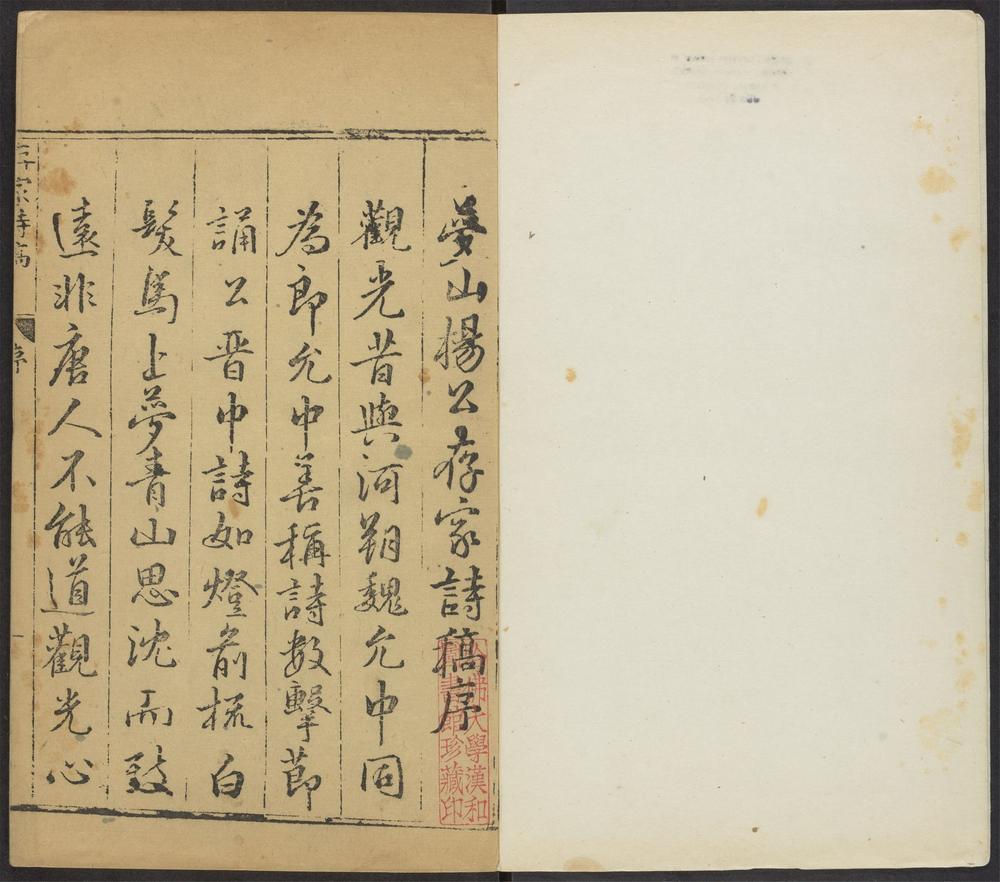 夢山楊公存家詩稿序
觀光昔與河朔魏允中同
為郎允中善稱詩數擊節
誦公晋中詩如燈前梳白
髮馬上夢青山思沈而致
遠非唐人不能道觀光心
存家詩稿
序
一
哈佛大學漢和
圖書館珍藏印